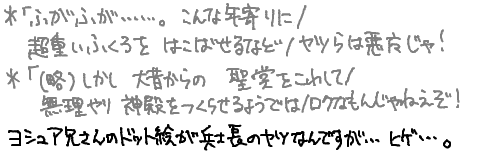 *「ふがふが……。こんな年寄りに/
超重いふくろを はこばせるなど/ヤツらは悪友じゃ!
*「(略)しかし 大昔からの 聖堂をこわして/
無理やり 神殿をつくらせるようでは/ロクなもんじゃねえぞ!
ヨシュア兄さんのドット絵が兵士長のヤツなんですが…ヒゲ…。